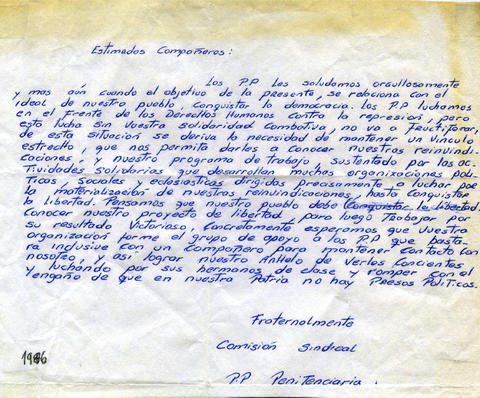 Estimados Compañeros:
Los P.P. Les saludamos orgullosamente
y mas aún cuando el objetivo de la presente, se relaciona con el
ideal de nuestro pueblo, conquistar la democracia. Los P.P luchamos
en el Frente de los Derechos Humanos contra la represion, pero
esta lucha sin vuestra solidaridad Combativa, no va a Fructificar,
de esta situación se deriva la necesidad de mantener un vinculo
estrecho, que nos permita darles a conocer nuestras reinvindi-
caciones, y nuestro programa de trabajo, sustentado por las ac-
tividades solidarias que desarrollan muchas organizaciones poli-
ticas, sociales y eclesiasticas dirigidas precisamente a luchar por
la materializacion de nuestras reinvindicaciones, hasta Conquistar
la libertad. Pensamos que nuestro pueblo debe Conquistar la libertad.
Conocer nuestro proyecto de libertad, para luego Trabajar por
su resultado Victorioso, Concretamente esperamos que Vuestra
organización forme el grupo de apoyo a los P.P que basta-
rá inclusive con un Compañero para mantener contacto con
nosotros, y así lograr nuestro Anhelo de Verlos Concientes
y luchando por sus hermanos de clase y romper con el
engaño de que en nuestra Patria no hay Presos Politicos.
Fraternalmente
Comisión Sindical
P.P Penitenciaria.
1986